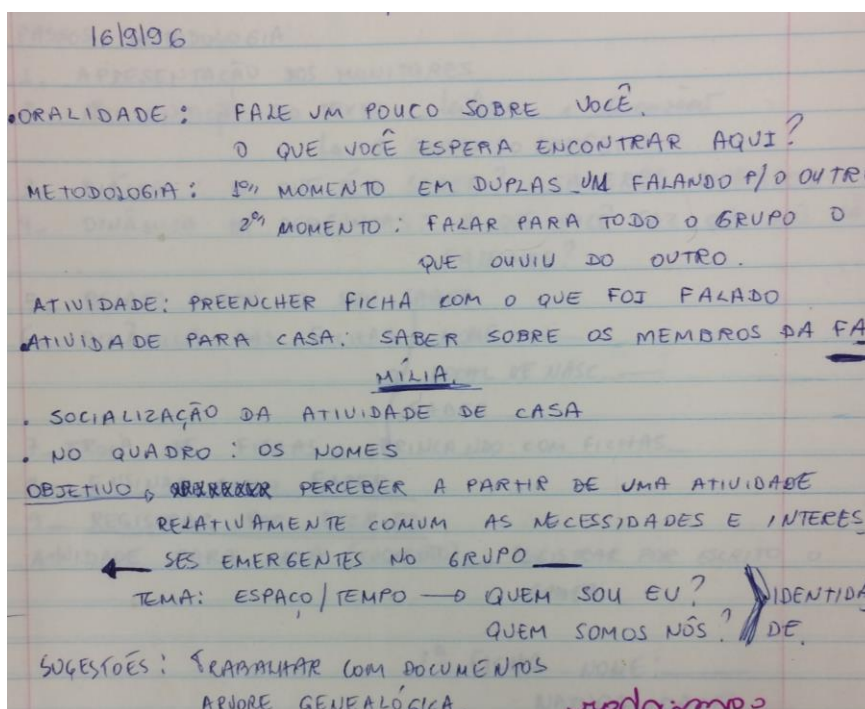 16/9/96
.ORALIDADE: FALE UM POUCO SOBRE VOCÊ.
O QUE VOCÊ ESPERA ENCONTRAR AQUI?
METODOLOGIA: 1º MOMENTO EM DUPLAS UM FALANDO P/ O OUTRO
2º MOMENTO: FALAR PARA TODO O GRUPO O
QUE OUVIU DO OUTRO.
ATIVIDADE: PREENCHER FICHA COM O QUE FOI FALADO
.ATIVIDADE PARA CASA: SABER SOBRE OS MEMBROS DA FA
MÍLIA.
. SOCIALIZAÇÃO DA ATIVIDADE DE CASA
. NO QUADRO: OS NOMES
OBJETIVO, PERCEBER A PARTIR DE UMA ATIVIDADE
RELATIVAMENTE COMUM AS NECESSIDADES E INTERES
SES EMERGENTES NO GRUPO
TEMA: ESPAÇO/TEMPO → QUEM SOU EU? IDENTIDA
QUEM SOMOS NÓS? DE.
SUGESTÕES: TRABALHAR COM DOCUMENTOS
ARVORE GENEALÓGICA